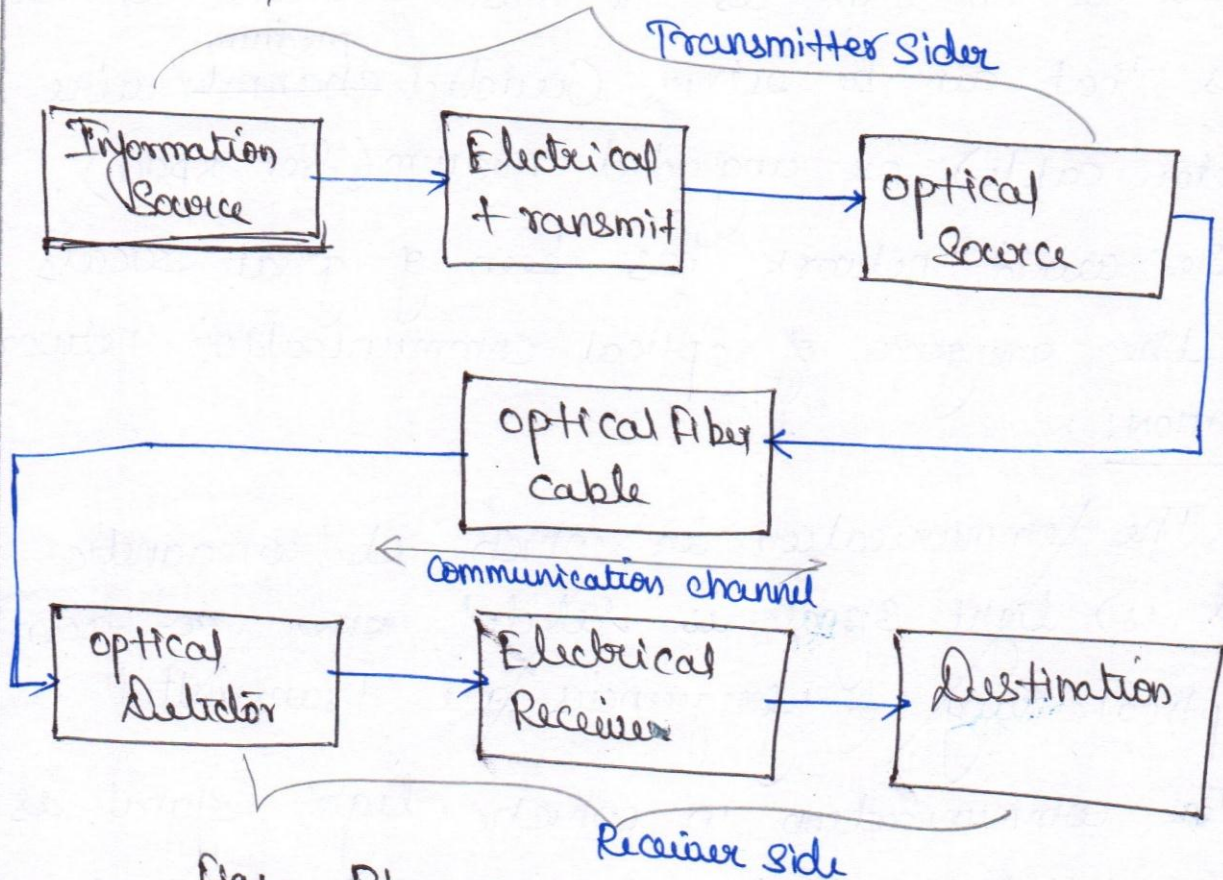 Transmitter Sider
Information
Source
Electrical
transmit
optical
Source
optical Fiber
cable
communication channel
optical
Detector
Electrical
Receiver
Destination
Receiver side